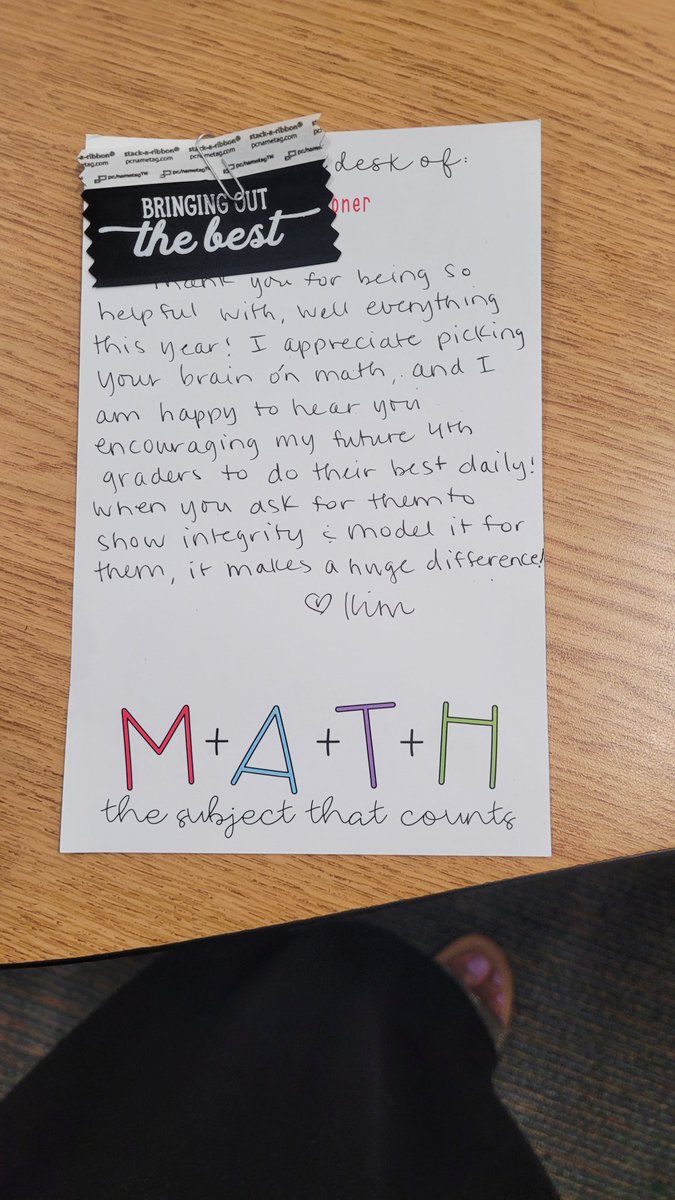 a-ribbon® stack-a-ribbon® stack-a-ribbon®
etag.com pcnametag.com nametag.com
pc/nametag™ pc/nametag™ pc/nametag™
BRINGING OUT
the best
desk of:
oner
Thank you for being so
helpful with, well everything
this year! I appreciate picking
your brain on math, and I
am happy to hear you
encouraging my future 4th
graders to do their best daily!
When you ask for them to
show integrity & model it for
them, it makes a huge difference!
♡ Kim
M+A+T+H
the subject that counts